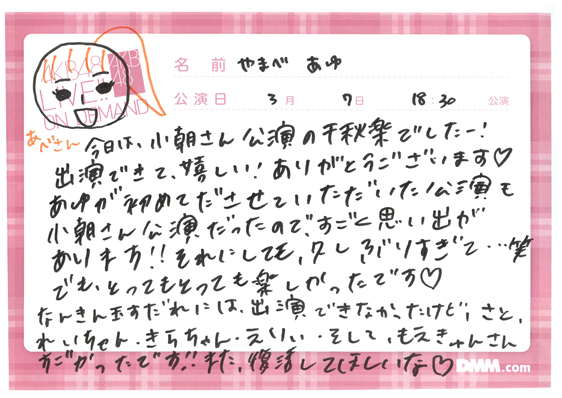 AKB48
LIVE!!
ON DEMAND
AKB
48
名 前 やまべ あゆ
公演日 3月 7日 18:30 公演
あべさん
今日は、小朝さん公演の千秋楽でしたー!
出演できて、嬉しい!ありがとうございます♡
あゆが初めてださせていただいた公演も
小朝さん公演だったので、すごく思い出が
あります!!それにしても、久しぶりすぎて…笑
でも、とってもとっても楽しかったです♡
なんきん玉すだれには、出演できなかったけど、さとぅ、
れいちゃん・きらちゃん・えりぃ・そして、もえきゅんさん
すごかったです!!また、復活してほしいな♡
DMM.com